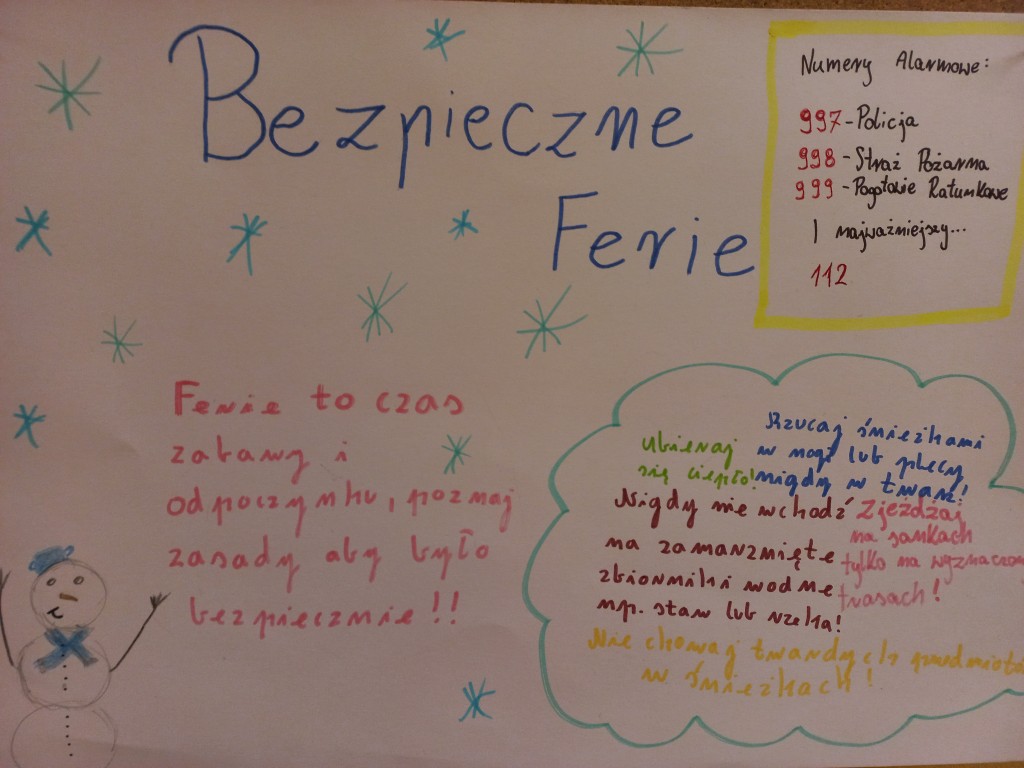 Bezpieczne
Ferie
Numery Alarmowe:
997-Policja
998-Straż Pożarna
999-Pogotowie Ratunkowe
I najważniejszy...
112
Ferie to czas
zabawy i
odpoczynku, poznaj
zasady aby było
bezpiecznie!!
Ubieraj
się ciepło!
Rzucaj śnieżkami
w nogi lub plecy
nigdy w twarz!
Nigdy nie wchodź
na zamarznięte
zbiorniki wodne
np. staw lub rzeka!
Zjeżdżaj
na sankach
tylko na wyznaczon
trasach!
Nie chowaj twardych przedmiotó
w śnieżkach!